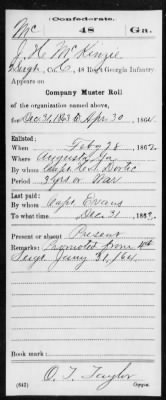 Confederate.
Mc 48 Ga.
J. H. McKenzie
Sergt., Co. C, 48 Reg't Georgia Infantry
Appears on
Company Muster Roll
of the organization named above,
for Dec 31, 1863 to Apr 30, 1864.
Enlisted:
When Feby 28, 1862
Where Augusta Ga
By whom Capt.
Period 3 yrs or War
Last paid:
By whom Capt. Evans
To what time Dec 31, 1863.
Present or absent Present
Remarks: Promoted from 4th
Sergt Jany 31, 164
Book mark:
O. T. Taylor
(642) Copyist.